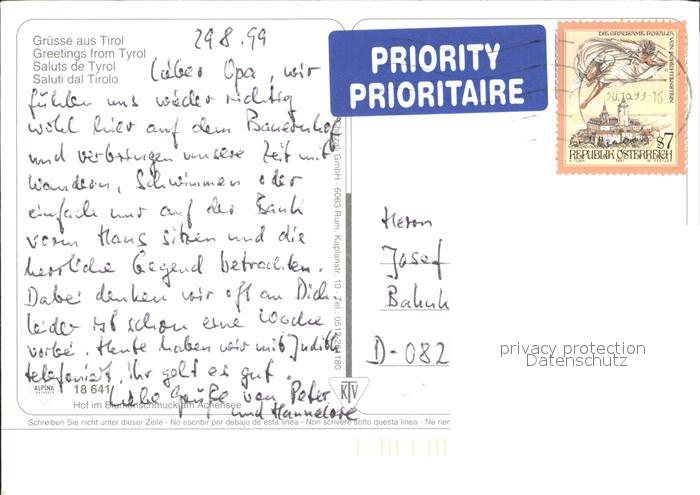 Grüsse aus Tirol
Greetings from Tyrol
Saluts de Tyrol
Saluti dal Tirolo
29.8.99
Lieber Opa, wir
fühlen uns wieder richtig
wohl hier auf dem Bauernhof
und verbringen unsere Zeit mit
Wandern, Schwimmen oder
einfach nur auf der Bank
vorm Haus sitzen und die
herrliche Gegend betrachten.
Dabei denken wir oft an Dich.
Leider ist schon eine Woche
vorbei. Heute haben wir mit Judith
telefoniert, ihr geht es gut.
Liebe Grüße von Peter
und Hannelore
ALPINA
18 641
Hof im Blumenschmuck am Achensee
Schreiben Sie nicht unter dieser Zeile - No escribir por debajo de esta linea - Non scrivere sotto questa linea - Ne rien
GmbH · 6063 Rum, Kaplanstr. 10 · Tel.: 0512
KTV
PRIORITY
PRIORITAIRE
DIE GRAUSAME ROSALIA
VON FORCHTENSTEIN
S7
REPUBLIK ÖSTERREICH
Herrn
Josef
D-082
privacy protection
Datenschutz